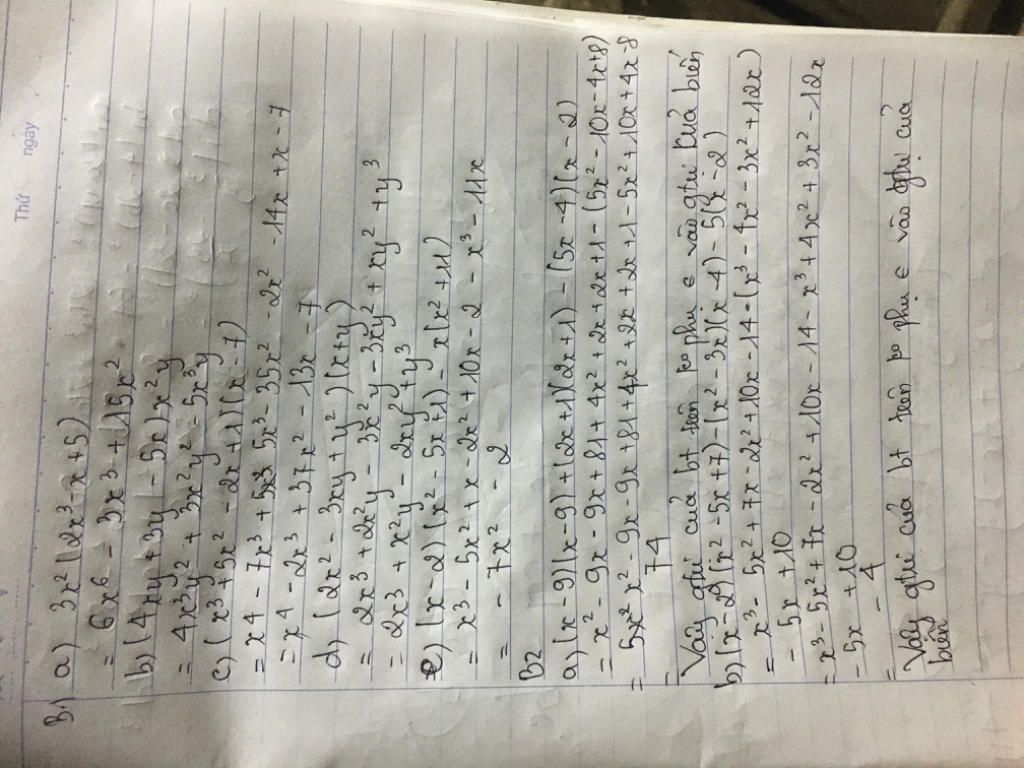 Thứ ngày
B1 a) 3x²(2x³ - x + 5)
= 6x⁶ - 3x³ + 15x²
b) (4xy + 3y - 5x)x²y
= 4x³y² + 3x²y² - 5x³y
c) (x³ + 5x² - 2x + 1)(x - 7)
= x⁴ - 7x³ + 5x³ - 35x² - 2x² - 14x + x - 7
= x⁴ - 2x³ + 37x² - 13x - 7
d) (2x² - 3xy + y²)(x + y)
= 2x³ + 2x²y - 3x²y - 3xy² + xy² + y³
= 2x³ + x²y - 2xy² + y³
e) (x - 2)(x² - 5x + 1) - x(x² + 11)
= x³ - 5x² + x - 2x² + 10x - 2 - x³ - 11x
= - 7x² - 2
B2
a) (x - 9)(x - 9) + (2x + 1)(2x + 1) - (5x - 4)(x - 2)
= x² - 9x - 9x + 81 + 4x² + 2x + 2x + 1 - (5x² - 10x - 4x + 8)
= x² - 9x - 9x + 81 + 4x² + 2x + 2x + 1 - 5x² + 10x + 4x - 8
= 74
Vậy gtrị của bt trên ko phụ ∈ vào gtrị của biến
b) (x - 2)(x² - 5x + 7) - (x² - 3x)(x - 4) - 5(x - 2)
= x³ - 5x² + 7x - 2x² + 10x - 14 - (x³ - 4x² - 3x² + 12x)
- 5x + 10
= x³ - 5x² + 7x - 2x² + 10x - 14 - x³ + 4x² + 3x² - 12x
- 5x + 10
= - 4
Vậy gtrị của bt trên ko phụ ∈ vào gtrị của
biến